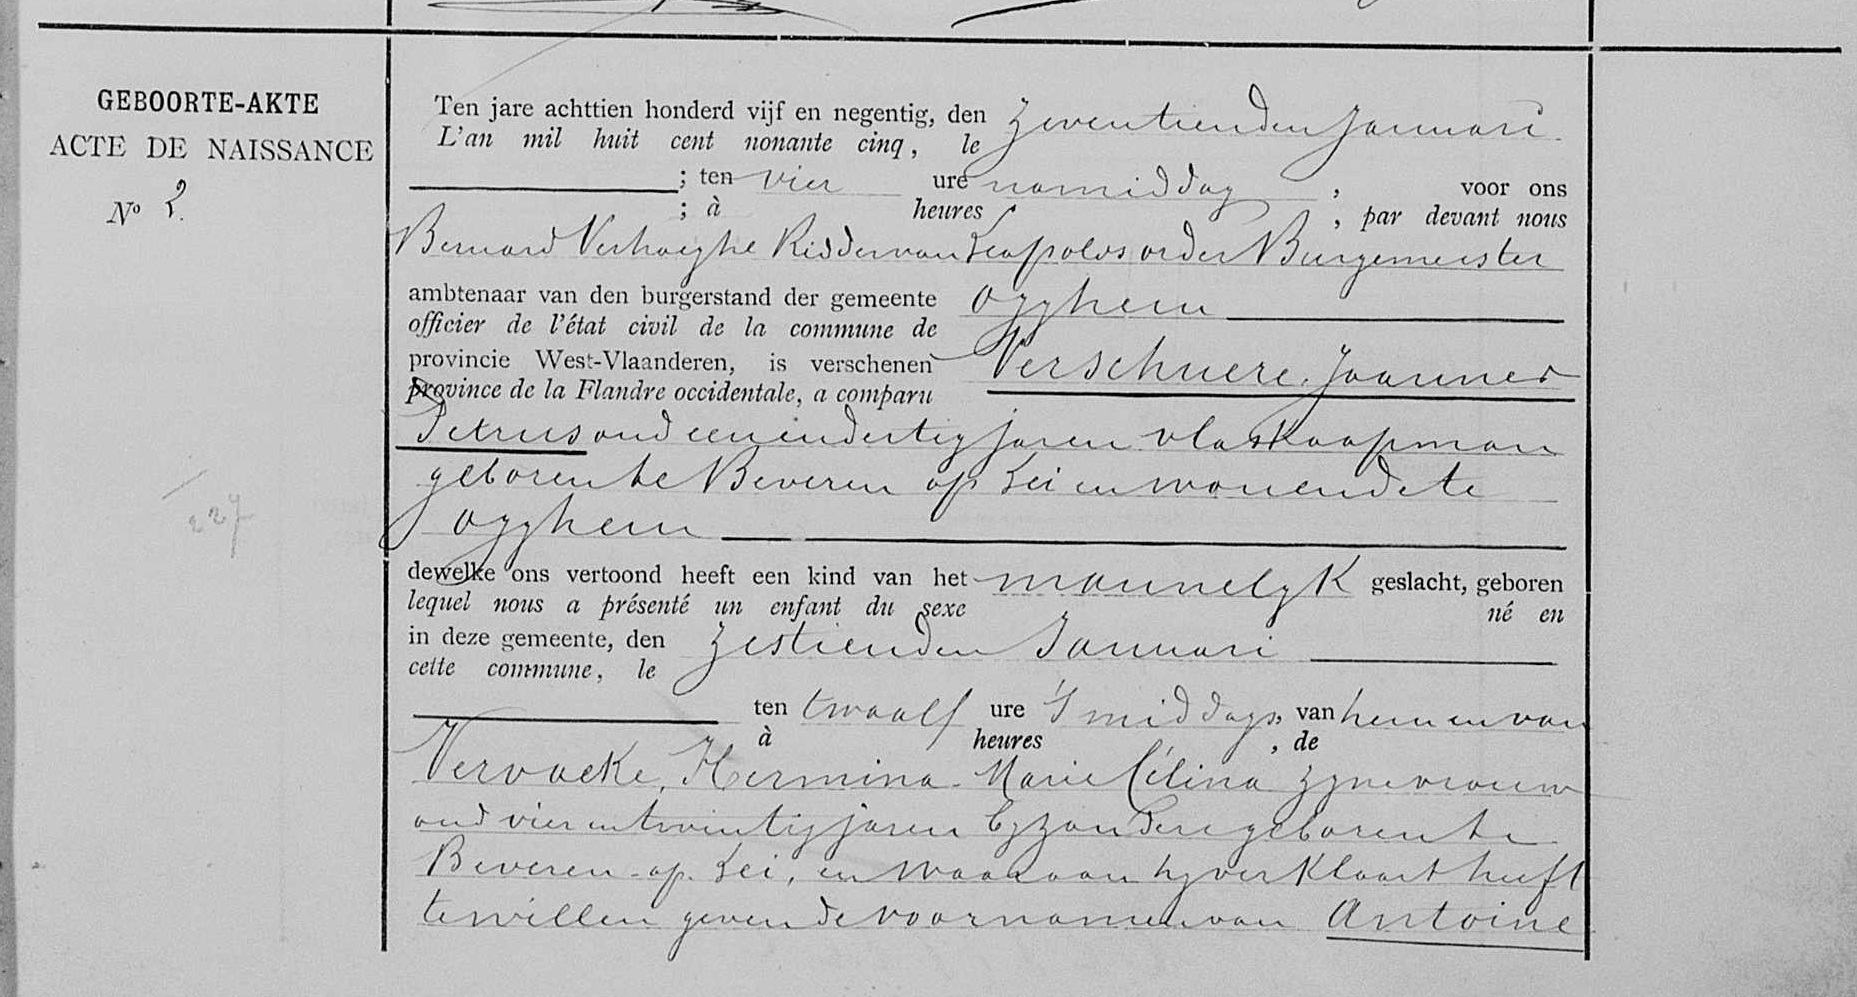 GEBOORTE-AKTE
ACTE DE NAISSANCE
Nº 2.
227
Ten jare achttien honderd vijf en negentig, den zeventienden Januari
L'an mil huit cent nonante cinq, le
; ten vier ure namiddag, voor ons
; à heures, par devant nous
Bernard Verhaeghe Ridder van Leopolds order Burgemeester
ambtenaar van den burgerstand der gemeente Oyghem
officier de l'état civil de la commune de
provincie West-Vlaanderen, is verschenen Verschuere, Joannes
province de la Flandre occidentale, a comparu
Petrus oud een en dertig jaren vlaskoopman
geboren te Beveren op Lei en wonende te
Oyghem
dewelke ons vertoond heeft een kind van het mannelyk geslacht, geboren
lequel nous a présenté un enfant du sexe né en
in deze gemeente, den zestienden Januari
cette commune, le
ten twaalf ure 's middags, van hem en van
à heures, de
Vervaeke, Hermina - Marie Célina zyne vrouw
oud vier en twintig jaren byzondere geboren te
Beveren - op - Lei, en waaraan hy verklaart heeft
te willen geven de voornamen van Antoine